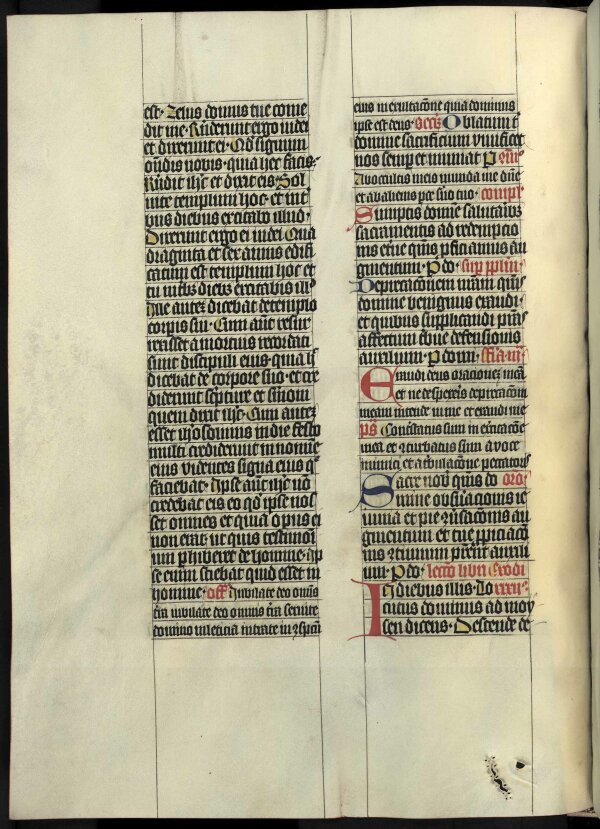 est · Zelus domus tue come
dit me · R̃nderunt ergo iudei
et dixerunt ei · Qd signum
oñdis nobis · quia hec facis ·
R̃ndit ihc̃ et dixit eis · Sol
uite templum hoc · et in t͛
bus diebus excitabo illud ·
Dixerunt ergo ei iudei Qua
draginta et sex annis edifi
catum est templum hoc et
tu in t͛bz diebz excitabis il͛
Ille autez dicebat de templo
corpis sui · Cum aut̃ resur
rexisset a mortuis recordati
sunt discipuli eius · quia h͛
dicebat de corpore suo · et cre
diderunt sc͛pture et s͛moni
quem dixit ihc̃ · Cum autez
esset ih͛osolimis in die festo
multi crediderunt in nomine
eius videntes signa eius q̃
faciebat · Ipse aut̃ ihc̃ nõ
credebat eis eo qd̃ ipse nos
set omnes et quia opus ei
non erat · ut quis testimoni
um phiberet de homine · Ip
se enim sciebat quid esset in
homine · off̃ Iubilate deo om̃is
t͛ra iubilate deo omnis t͛ra seruite
domino in leticia intrate in 9spctũ
eius in exultacõne quia dominus
ipse est deus · Secr̃ Oblatum t͛
domine sacrificium viuificet
nos semp et muniat P
Ab occultis meis munda me dñe
et ab alienis parce suo tuo · compl͛
Sumptis domine salutarib9
sacramentis ad redempcio
nis et̃ne qm̃s pficiamus au
gmentum · P do · sup pplm̃ ·
Deprecacionem nr̃am qm̃s
domine benignus exaudi ·
et quibus supplicandi p͛stas
affectum t͛bue defensionis
auxilium · P dom̃ ·
Exaudi deus oracionez meã
et ne despexeris deprecacõem
meam intende in me et exaudi me
ps̃ Contristatus sum in ex͛citacõne
mea et 9turbatus sum a voce
inimici et a t͛bulacõne peccatoris
Sacre nob̃ qm̃s do oro͛
mine obs͛uacionis ie
iunia et pie 9u͛sacõnis au
gmentum et tue ppiciacõ
nis 9tinuum p͛stent auxili
um · P do · lectio libri Exodi
In diebus illis · Lo xxxii ·
cutus dominus ad moy
sen dicens · Descende de